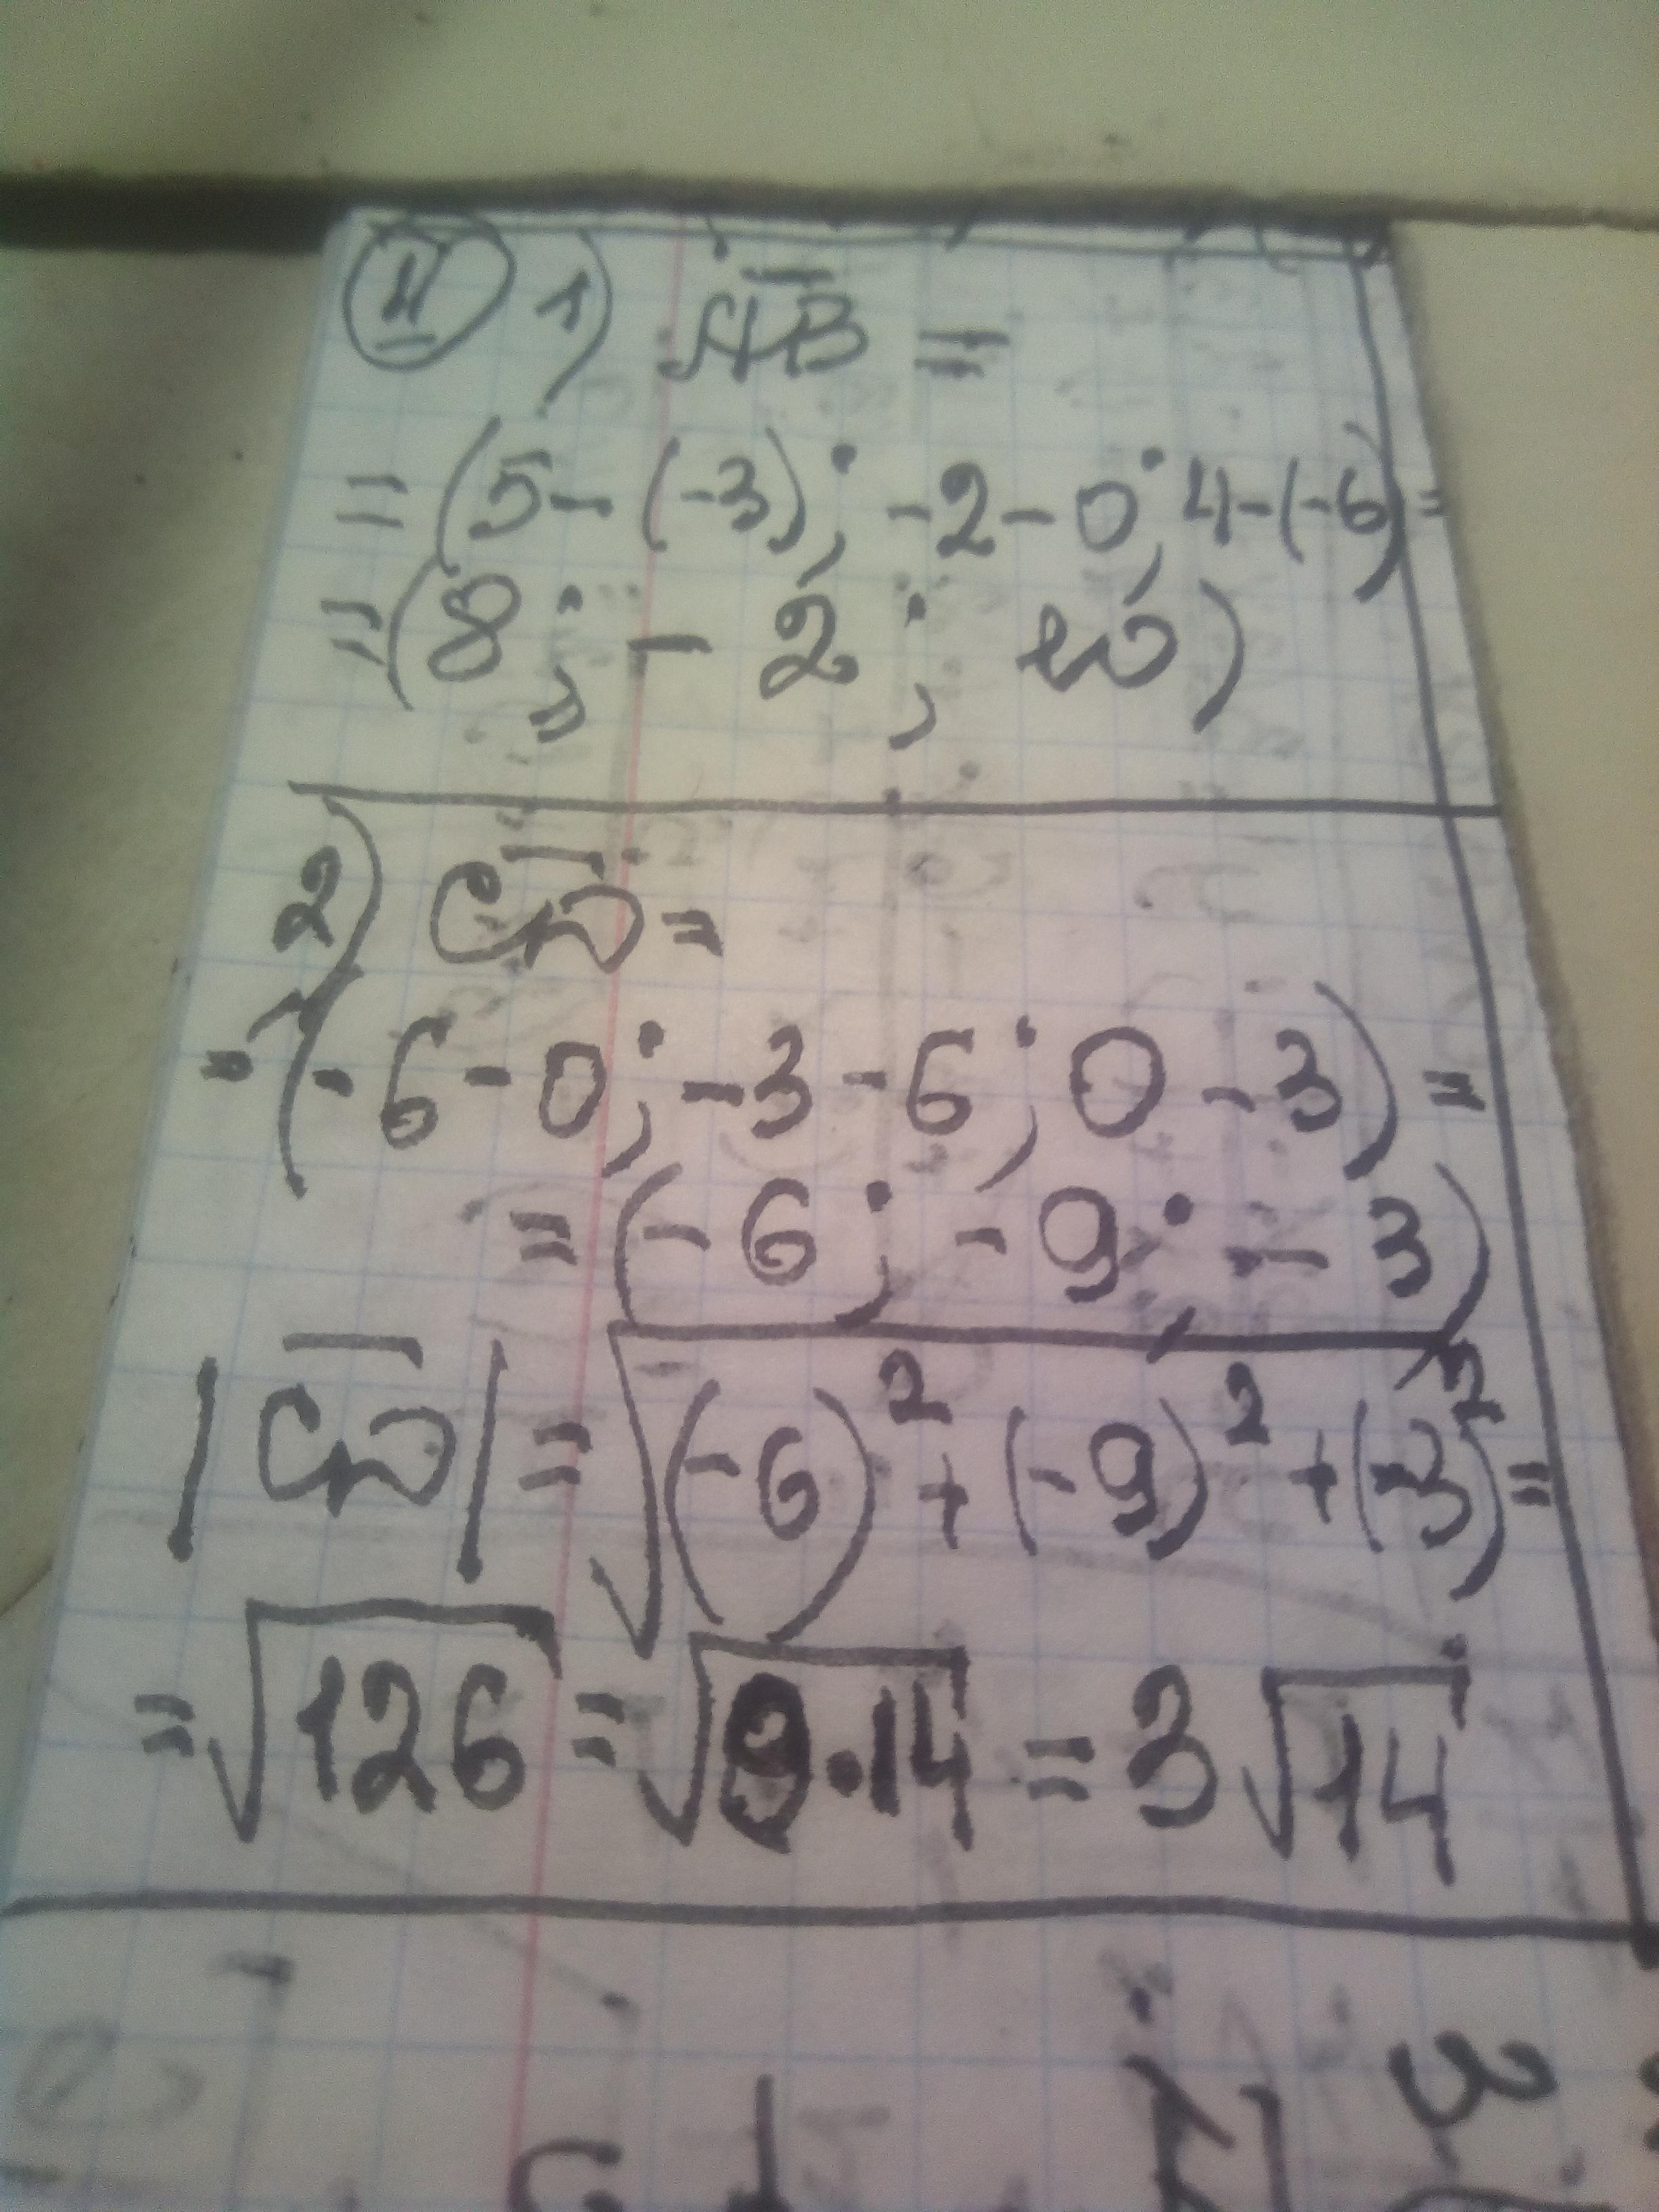 II 1) AB =
= (5-(-3); -2-0; 4-(-6) =
= (8; -2; 10)
2) CD =
= (-6-0; -3-6; 0-3) =
= (-6; -9; -3)
|CD| = √(-6)² + (-9)² + (-3)² =
= √126 = √9·14 = 3√14